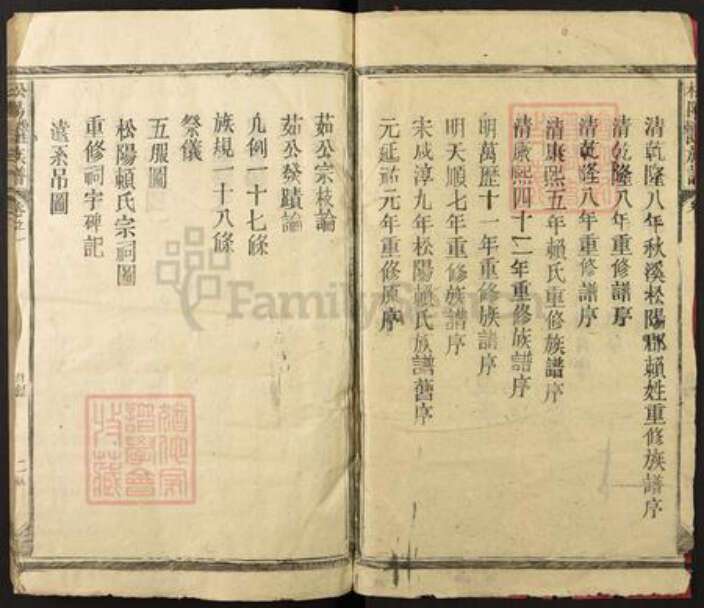 清乾隆八年秋溪松陽郡賴姓重修族譜序
清乾隆八年重修譜序
清乾隆八年重修譜序
清康熙五年賴氏重修族譜序
清康熙四十二年重修族譜序
明萬歷十一年重修族譜序
明天順七年重修族譜序
宋咸淳九年松陽賴氏族譜舊序
元延祐元年重修原序
茹公宗枝論
茹公發蹟論
凡例一十七條
族規一十八條
祭儀
五服圖
松陽賴氏宗祠圖
重修祠宇碑記
遠系吊圖
松陽賴氏族譜 卷之一
FamilySearch